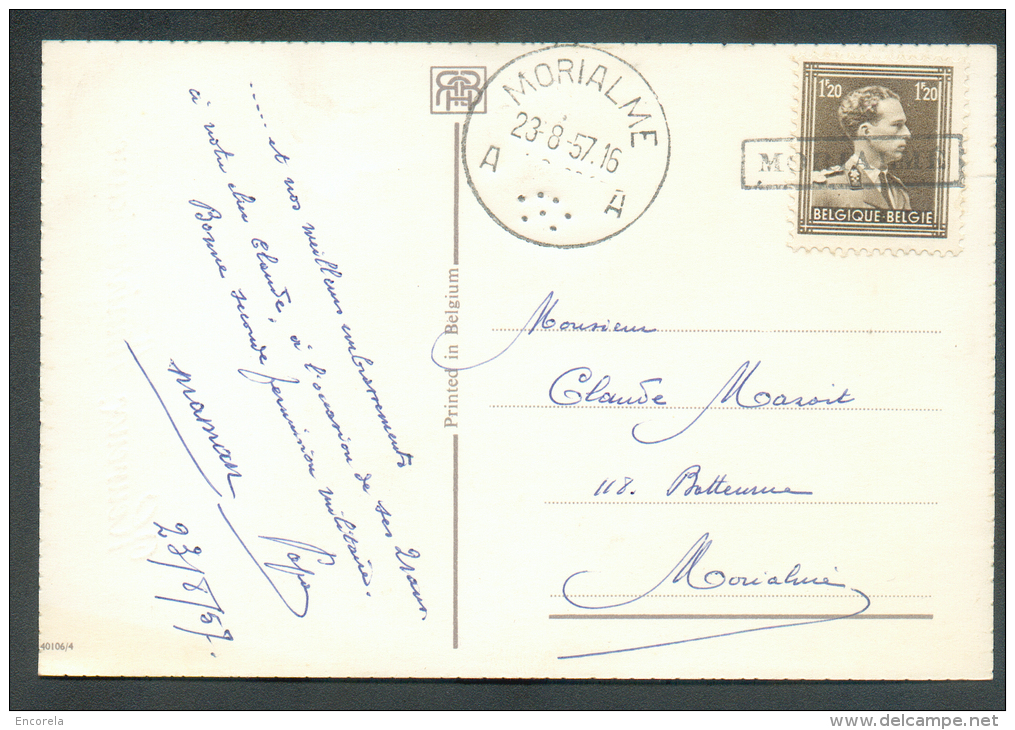 ..... et nos meilleurs embrassements
à notre cher Claude, à l'occasion de ses 21 ans
Bonne seconde permission militaire.
Maman Papa
23/8/57.
40106/4
Printed in Belgium
MORIALME
23-8-57.16
A A
1F20 1F20
BELGIQUE·BELGIE
MORIALME
Monsieur
Claude Mazoit
118. Batteurue
Morialmé
Encorela
www.delcampe.net